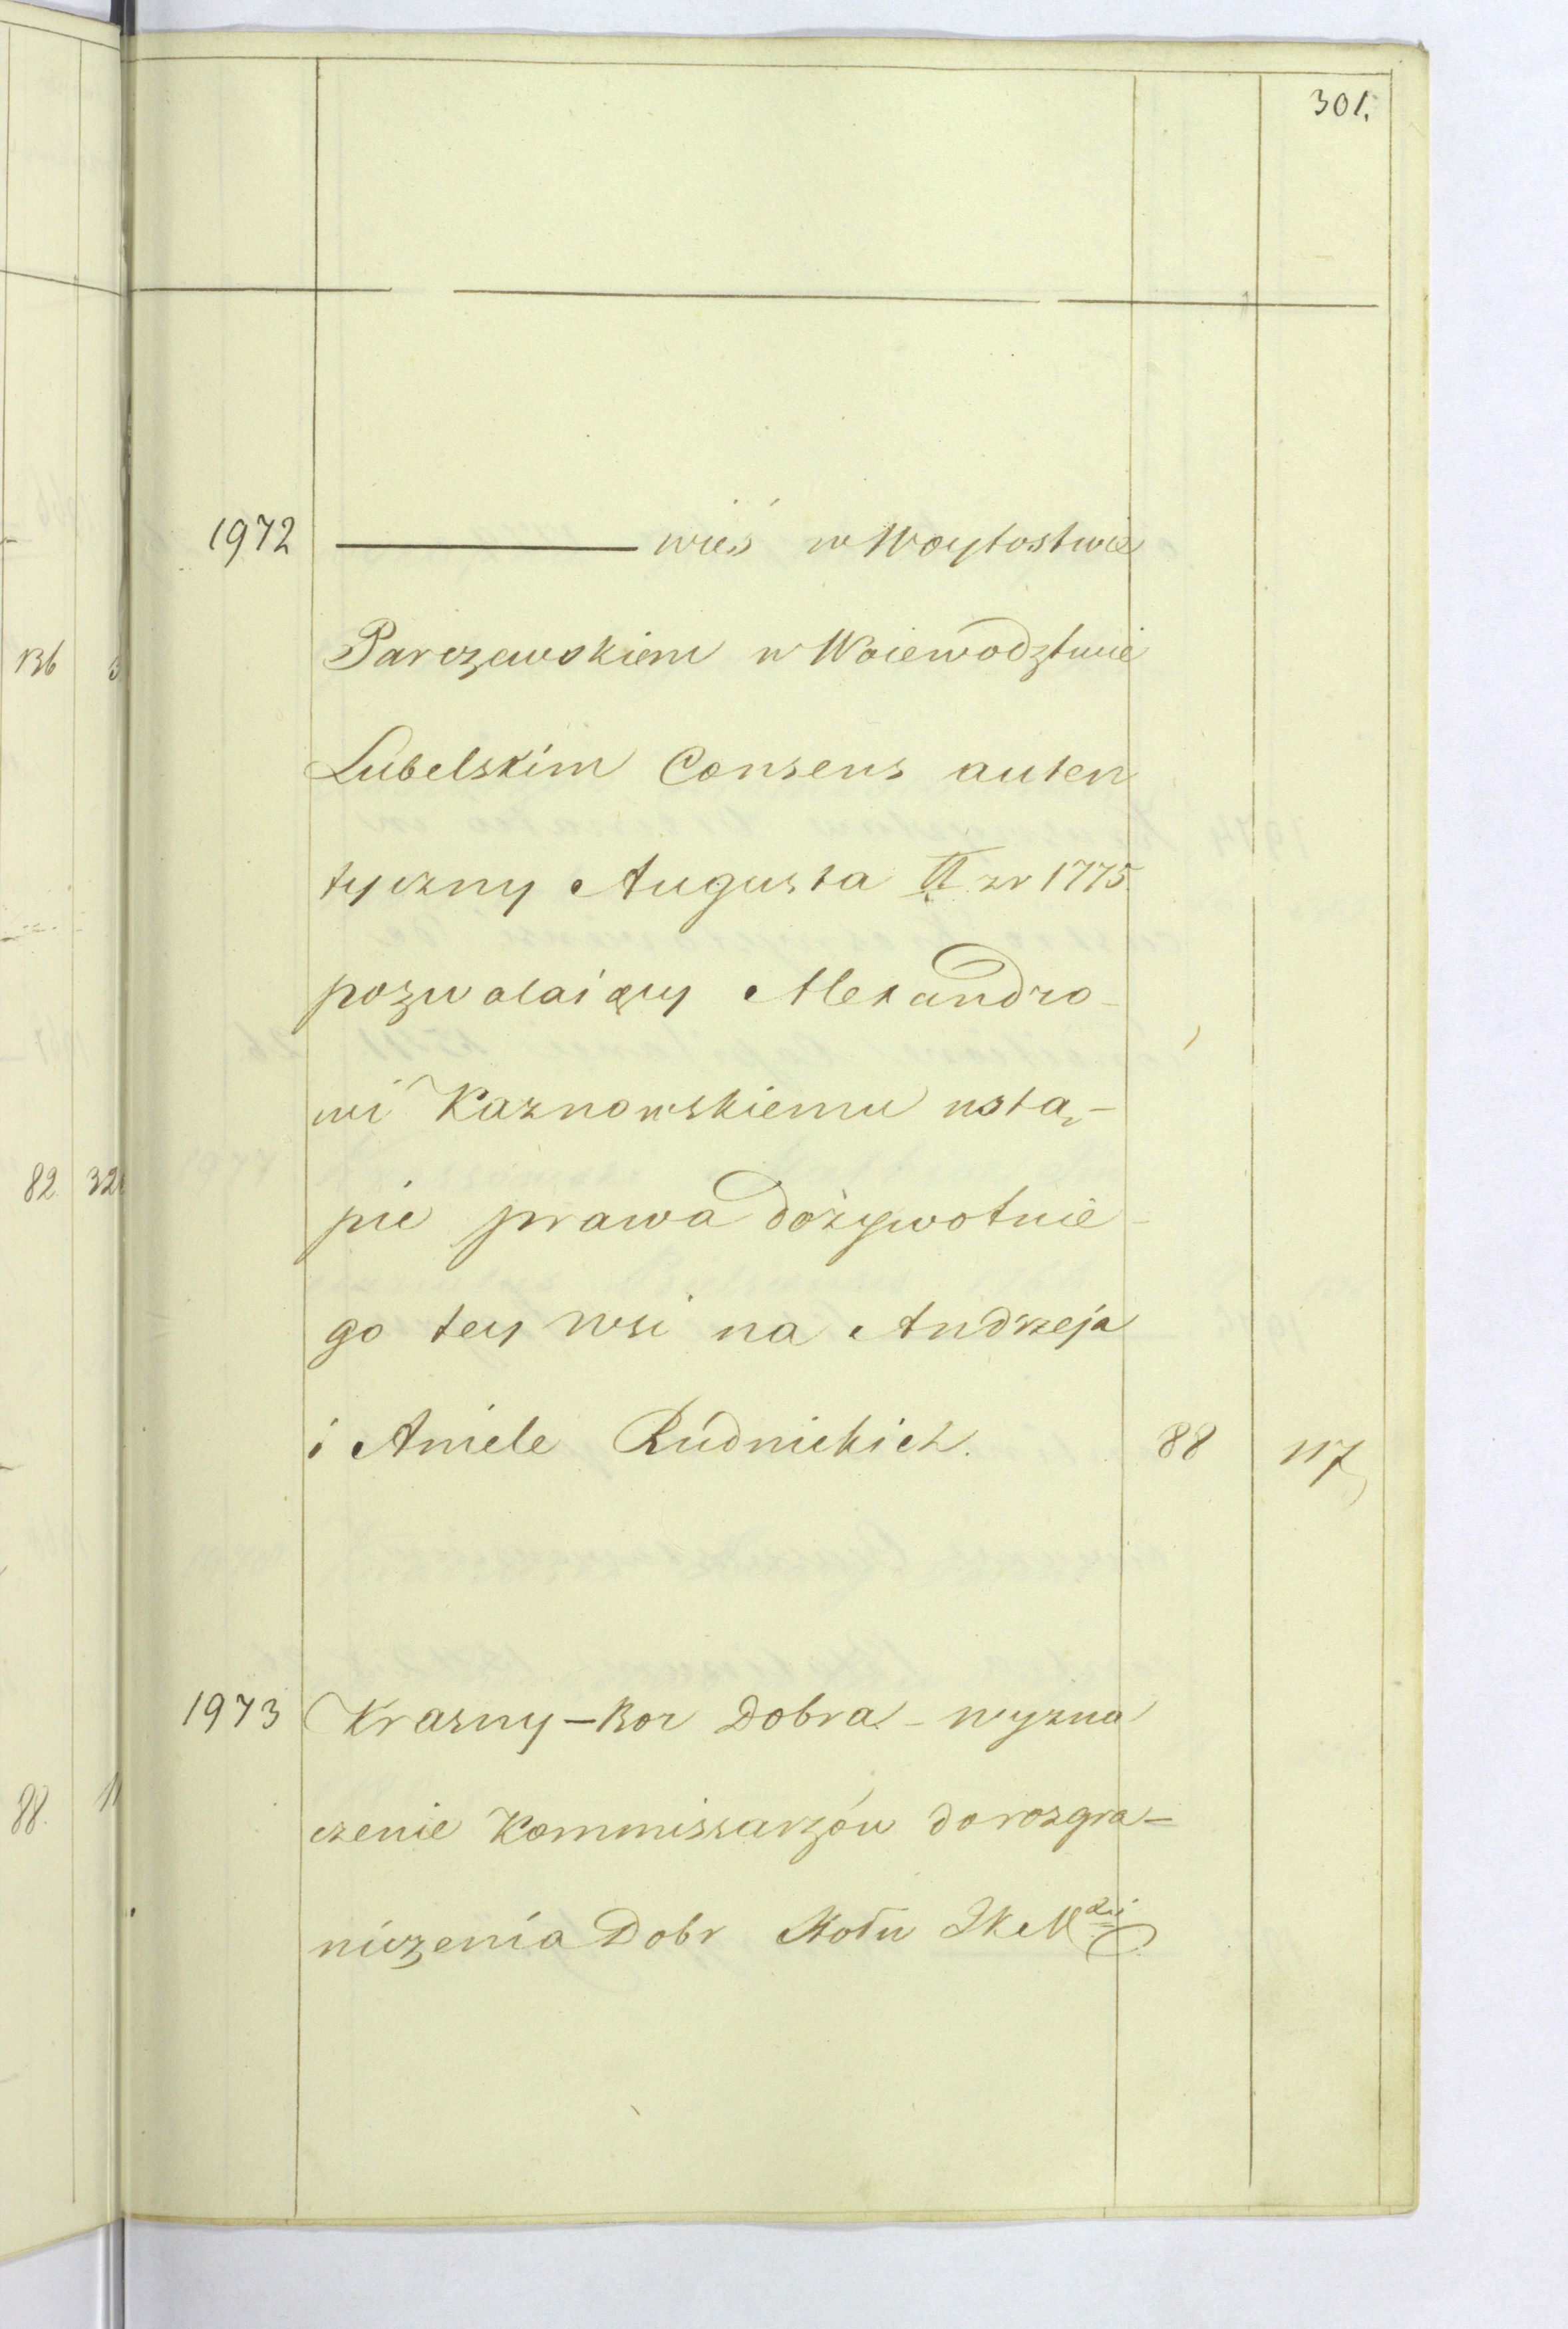 301.
1972 ——— wieś w Woytostwie
Parczewskiem w Woiewodztwie
Lubelskim Consens auten
tyczny Augusta II zr 1775.
pozwalaiący Alexandro-
wi Kaznowskiemu ustą-
pić prawa dożywotnie-
go tey wsi na Andrzeja
i Aniele Rudnickich. 88 117
1973 Krasny-Bor Dobra - wyzna
czenie Kommissarzów do rozgra-
niczenia Dobr Stołu JKMci
136
82 32
88.